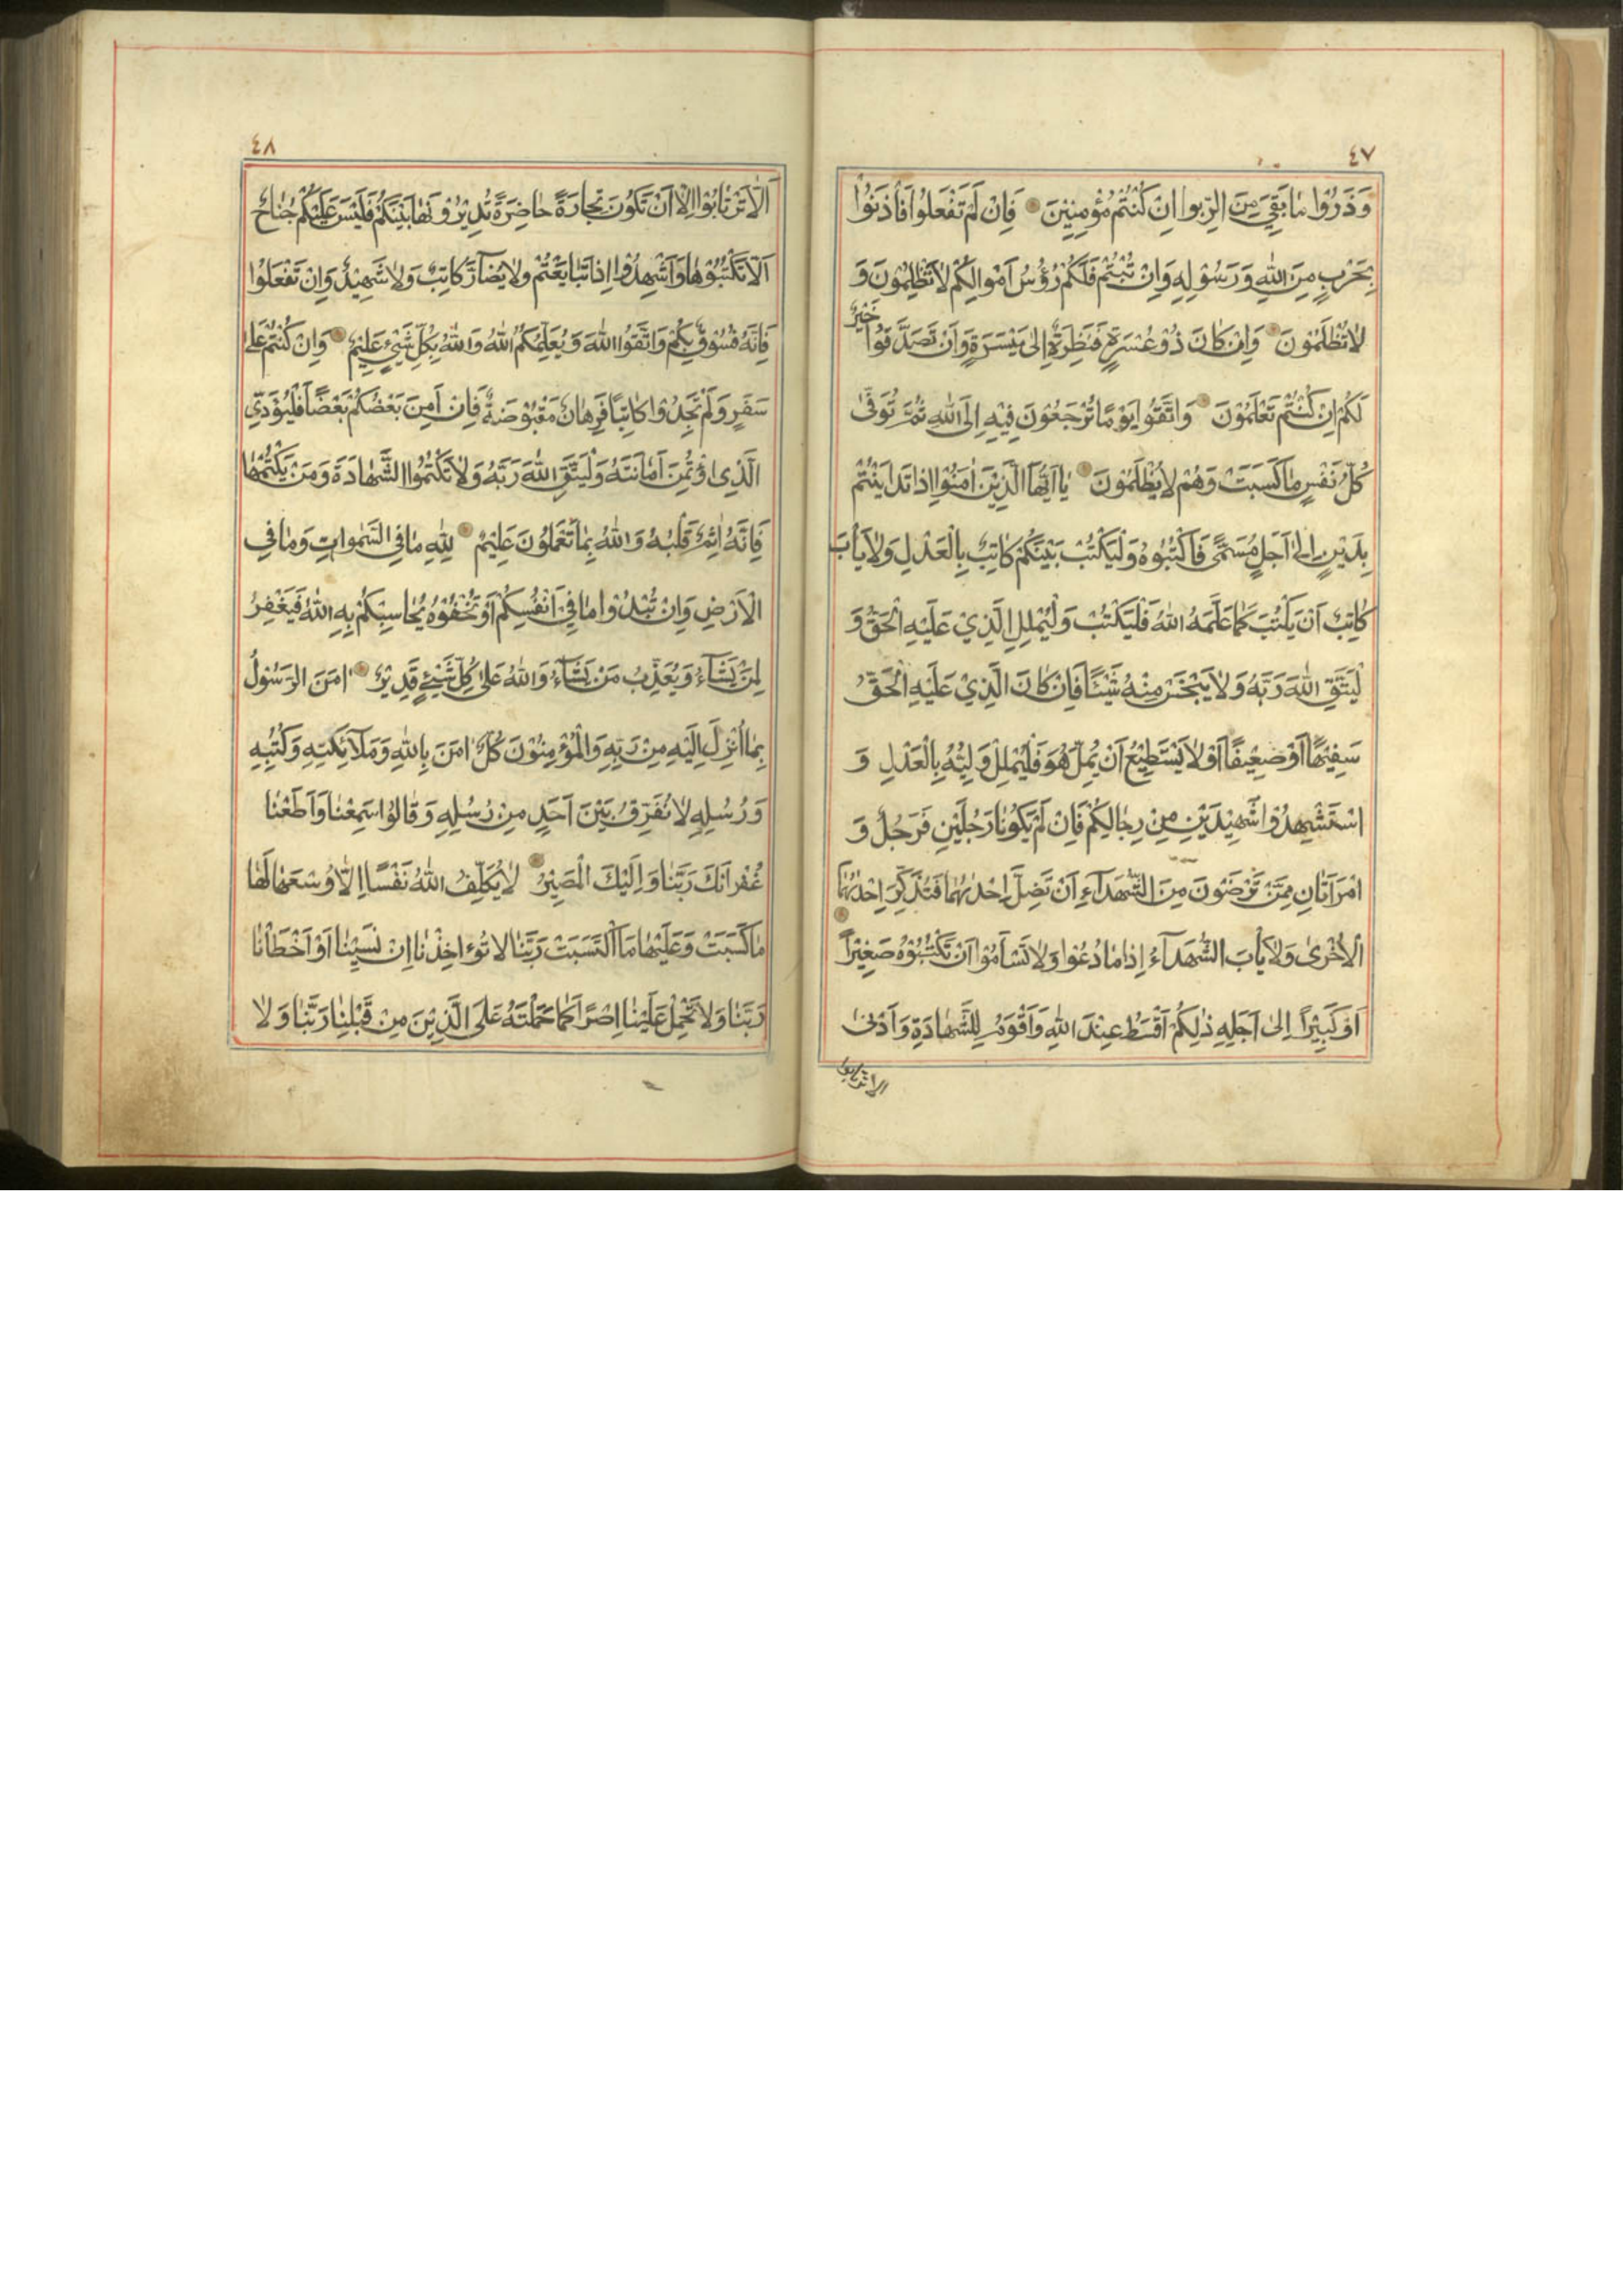 ٤٧
وَذَرُوْا مَا بَقِيَ مِنَ الرِّبوا اِنْ كُنْتُمْ مُؤْمِنِيْنَ فَاِنْ لَمْ تَفْعَلُوْا فَأْذَنُوْا
بِحَرْبٍ مِنَ اللّٰهِ وَرَسُوْلِهِ وَاِنْ تُبْتُمْ فَلَكُمْ رُؤُسُ اَمْوالِكُمْ لاتَظْلِمُوْنَ وَ
لاتُظْلَمُوْنَ وَاِنْ كَانَ ذُوْعُسْرَةٍ فَنَظِرَةٌ اِلىٰ مَيْسَرَةٍ وَاَنْ تَصَدَّقُوْا خَيْرٌ
لَكُمْ اِنْ كُنْتُمْ تَعْلَمُوْنَ وَاتَّقُوْا يَوْمًا تُرْجَعُوْنَ فِيْهِ اِلَى اللّٰهِ ثُمَّ تُوَفّٰى
كُلُّ نَفْسٍ مَاكَسَبَتْ وَهُمْ لايُظْلَمُوْنَ يٰا اَيُّهَا الَّذِيْنَ اٰمَنُوْا اِذَا تَدَايَنْتُمْ
بِدَيْنٍ اِلىٰ اَجَلٍ مُسَمًّى فَاكْتُبُوْهُ وَلْيَكْتُبْ بَيْنَكُمْ كَاتِبٌ بِالْعَدْلِ وَلايَأْبَ
كَاتِبٌ اَنْ يَكْتُبَ كَمَا عَلَّمَهُ اللّٰهُ فَلْيَكْتُبْ وَلْيُمْلِلِ الَّذِيْ عَلَيْهِ الْحَقُّ وَ
لْيَتَّقِ اللّٰهَ رَبَّهُ وَلايَبْخَسْ مِنْهُ شَيْئًا فَاِنْ كَانَ الَّذِيْ عَلَيْهِ الْحَقُّ
سَفِيْهًا اَوْ ضَعِيْفًا اَوْ لايَسْتَطِيْعُ اَنْ يُمِلَّ هُوَ فَلْيُمْلِلْ وَلِيُّهُ بِالْعَدْلِ وَ
اسْتَشْهِدُوْا شَهِيْدَيْنِ مِنْ رِجَالِكُمْ فَاِنْ لَمْ يَكُوْنَا رَجُلَيْنِ فَرَجُلٌ وَ
امْرَاَتَانِ مِمَّنْ تَرْضَوْنَ مِنَ الشُّهَدَآءِ اَنْ تَضِلَّ اِحْدٰىهُمَا فَتُذَكِّرَ اِحْدٰىهُمَا
الْاُخْرىٰ وَلايَأْبَ الشُّهَدَآءُ اِذَا مَا دُعُوْا وَلاتَسْاَمُوْا اَنْ تَكْتُبُوْهُ صَغِيْراً
اَوْ كَبِيْراً اِلىٰ اَجَلِهِ ذٰلِكُمْ اَقْسَطُ عِنْدَ اللّٰهِ وَاَقْوَمُ لِلشَّهَادَةِ وَاَدْنىٰ
الا ترتابوا
٤٨
اَلّاتَرْتَابُوْا اِلّا اَنْ تَكُوْنَ تِجَارَةً حَاضِرَةً تُدِيْرُوْنَهَا بَيْنَكُمْ فَلَيْسَ عَلَيْكُمْ جُنَاحٌ
اَلّاتَكْتُبُوْهَا وَاَشْهِدُوْا اِذَا تَبَايَعْتُمْ وَلايُضَآرَّ كَاتِبٌ وَلاشَهِيْدٌ وَاِنْ تَفْعَلُوْا
فَاِنَّهُ فُسُوْقٌ بِكُمْ وَاتَّقُوا اللّٰهَ وَيُعَلِّمُكُمُ اللّٰهُ وَاللّٰهُ بِكُلِّ شَيْءٍ عَلِيْمٌ وَاِنْ كُنْتُمْ عَلىٰ
سَفَرٍ وَلَمْ تَجِدُوْا كَاتِبًا فَرِهَانٌ مَقْبُوْضَةٌ فَاِنْ اَمِنَ بَعْضُكُمْ بَعْضًا فَلْيُؤَدِّي
الَّذِى اؤْتُمِنَ اَمَانَتَهُ وَلْيَتَّقِ اللّٰهَ رَبَّهُ وَلاتَكْتُمُوا الشَّهَادَةَ وَمَنْ يَكْتُمْهَا
فَاِنَّهُ اٰثِمٌ قَلْبُهُ وَاللّٰهُ بِمَا تَعْمَلُوْنَ عَلِيْمٌ لِلّٰهِ مَا فِي السَّمٰوَاتِ وَمَا فِي
الْاَرْضِ وَاِنْ تُبْدُوْا مَا فِيْ اَنْفُسِكُمْ اَوْ تُخْفُوْهُ يُحَاسِبْكُمْ بِهِ اللّٰهُ فَيَغْفِرُ
لِمَنْ يَشَآءُ وَيُعَذِّبُ مَنْ يَشَآءُ وَاللّٰهُ عَلىٰ كُلِّ شَيْءٍ قَدِيْرٌ اٰمَنَ الرَّسُوْلُ
بِمَا اُنْزِلَ اِلَيْهِ مِنْ رَبِّهِ وَالْمُؤْمِنُوْنَ كُلٌّ اٰمَنَ بِاللّٰهِ وَمَلآئِكَتِهِ وَكُتُبِهِ
وَرُسُلِهِ لانُفَرِّقُ بَيْنَ اَحَدٍ مِنْ رُسُلِهِ وَقَالُوْا سَمِعْنَا وَاَطَعْنَا
غُفْرانَكَ رَبَّنَا وَاِلَيْكَ الْمَصِيْرُ لايُكَلِّفُ اللّٰهُ نَفْسًا اِلّا وُسْعَهَا لَهَا
مَاكَسَبَتْ وَعَلَيْهَا مَا اكْتَسَبَتْ رَبَّنَا لاتُؤاخِذْنَا اِنْ نَسِيْنَا اَوْ اَخْطَأْنَا
رَبَّنَا وَلاتَحْمِلْ عَلَيْنَا اِصْرًا كَمَا حَمَلْتَهُ عَلَى الَّذِيْنَ مِنْ قَبْلِنَا رَبَّنَا وَلا